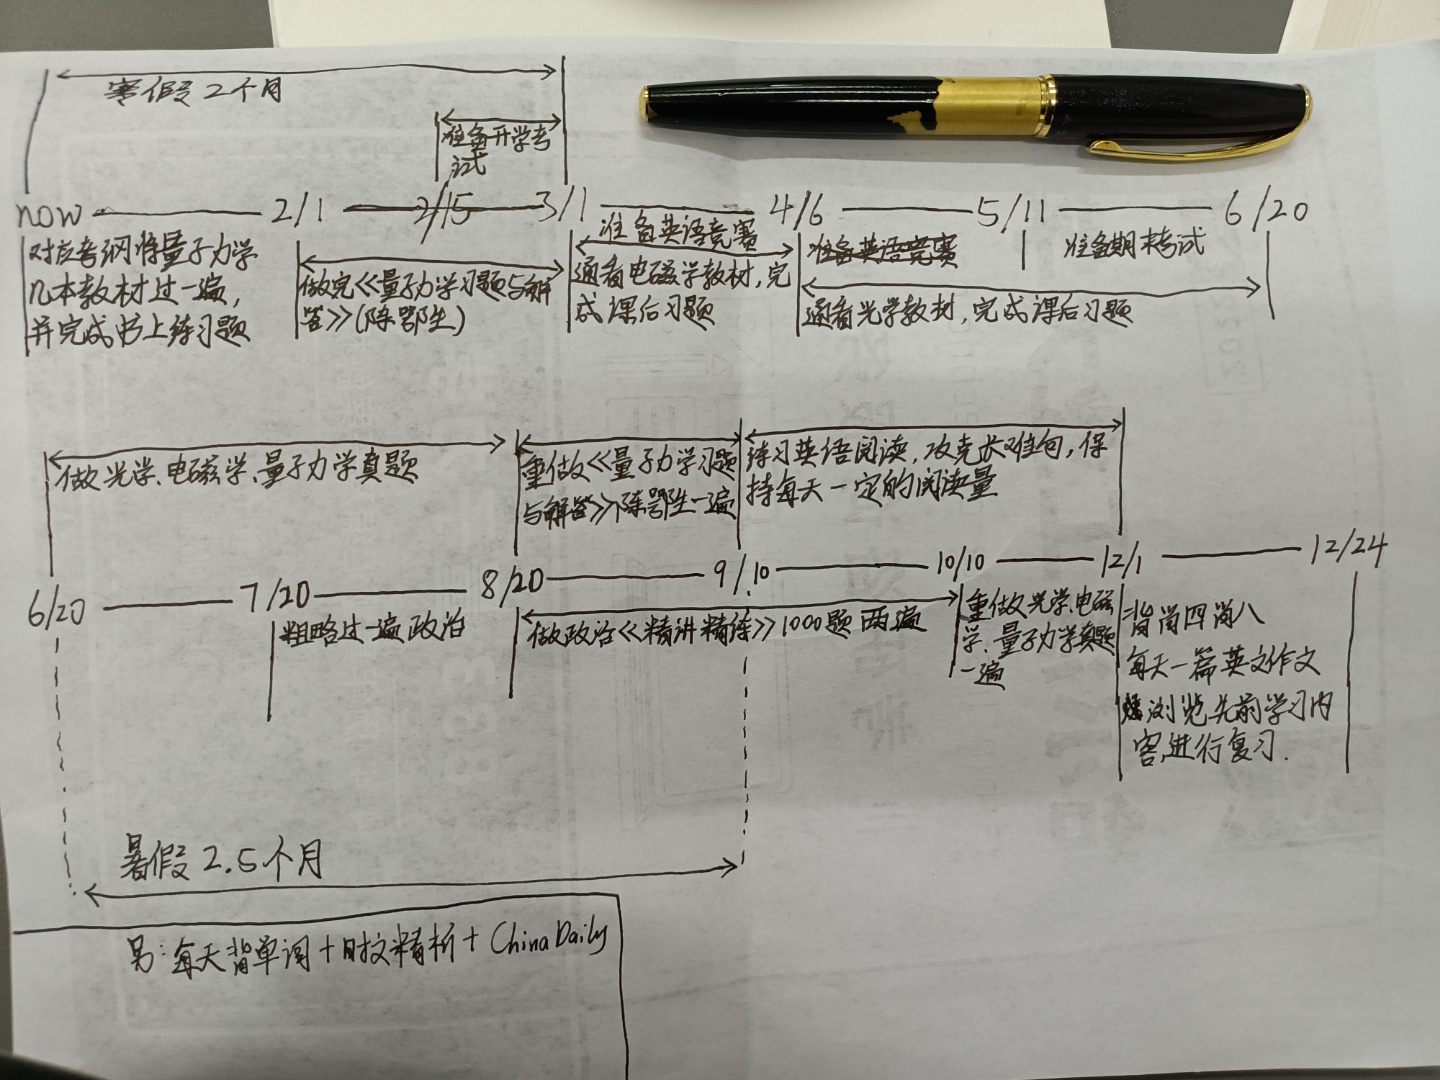 寒假2个月
准备开学考
试
now 2/1 2/15 3/1 4/6 5/11 6/20
对应考纲将量子力学
几本教材过一遍,
并完成书上练习题
做完<<量子力学习题与解
答>>(陈鄂生)
准备英语竞赛
通看电磁学教材,完
成课后习题
准备英语竞赛
通看光学教材,完成课后习题
准备期末考试
做光学、电磁学、量子力学真题
重做<<量子力学习题
与解答>>陈鄂生一遍
练习英语阅读,攻克长难句,保
持每天一定的阅读量
6/20 7/20 8/20 9/10 10/10 12/1 12/24
粗略过一遍政治
做政治<<精讲精练>>1000题两遍
重做光学、电磁
学、量子力学真题
一遍
背肖四肖八
每天一篇英文作文
浏览先前学习内
容,进行复习.
暑假2.5个月
另:每天背单词+时文精析+ChinaDaily